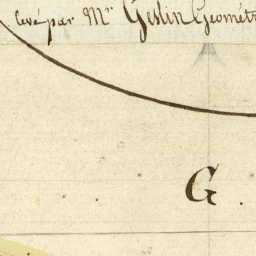 levé par Mr Geslin Géomét
G.